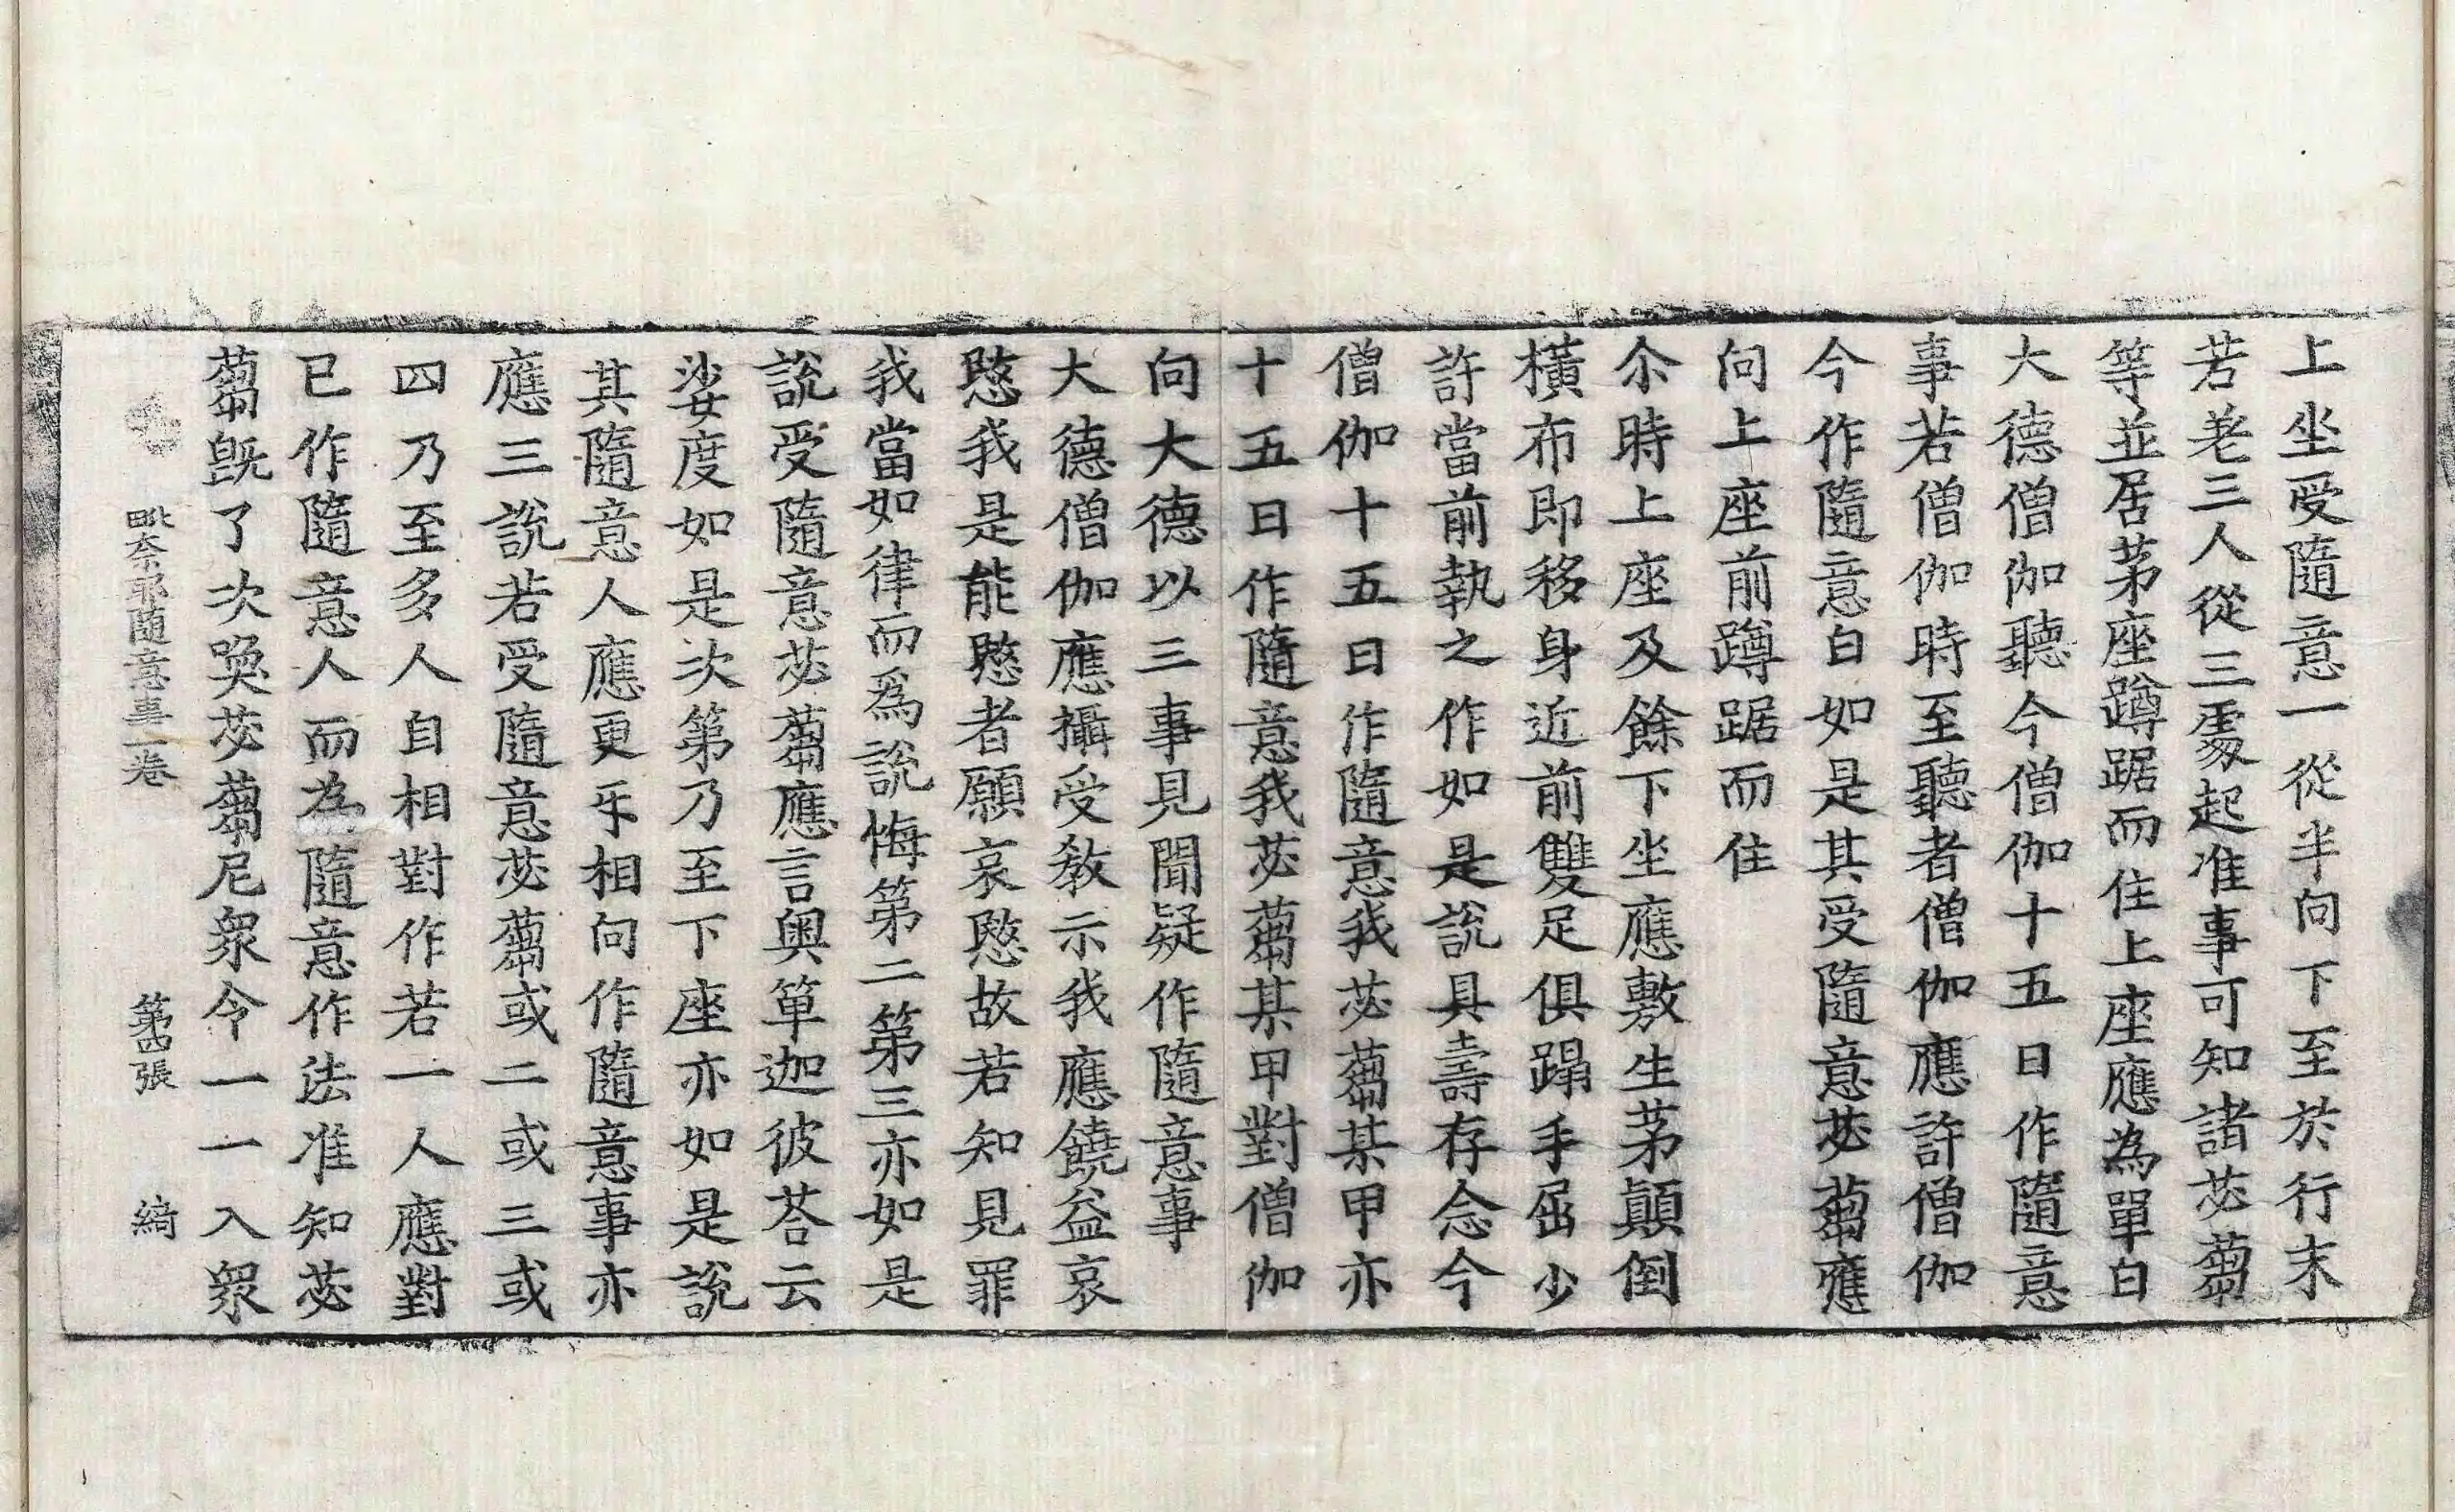 上坐受隨意一從半向下至於行末
若差三人從三處起准事可知諸苾蒭
等並居茅座蹲踞而住上座應為單白
大德僧伽聽今僧伽十五日作隨意
事若僧伽時至聽者僧伽應許僧伽
今作隨意白如是其受隨意苾蒭應
向上座前蹲踞而住
尒時上座及餘下坐應敷生茅顛倒
橫布即移身近前雙足俱蹋手屈少
許當前執之作如是說具壽存念今
僧伽十五日作隨意我苾蒭某甲亦
十五日作隨意我苾蒭某甲對僧伽
向大德以三事見聞疑作隨意事
大德僧伽應攝受教示我應饒益哀
愍我是能愍者願哀愍故若知見罪
我當如律而爲說悔第二第三亦如是
說受隨意苾蒭應言奧箄迦彼荅云
娑度如是次第乃至下座亦如是說
其隨意人應更㸦相向作隨意事亦
應三說若受隨意苾蒭或二或三或
四乃至多人自相對作若一人應對
已作隨意人而為隨意作法准知苾
蒭旣了次喚苾蒭尼衆令一一入衆
毗奈耶隨意事一卷 第四張 綺